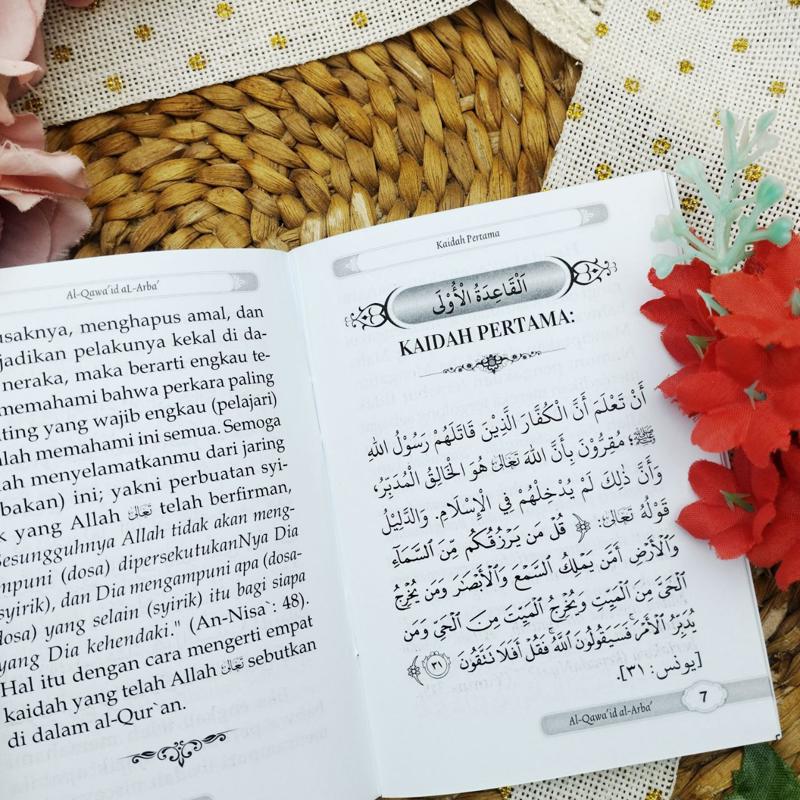 Al-Qawa'id aL-Arba'
usaknya, menghapus amal, dan
jadikan pelakunya kekal di da-
neraka, maka berarti engkau te-
memahami bahwa perkara paling
ting yang wajib engkau (pelajari)
lah memahami ini semua. Semoga
lah menyelamatkanmu dari jaring
bakan) ini; yakni perbuatan syi-
k yang Allah تعالى telah berfirman,
Sesungguhnya Allah tidak akan meng-
mpuni (dosa) dipersekutukanNya Dia
syirik), dan Dia mengampuni apa (dosa-
dosa) yang selain (syirik) itu bagi siapa
yang Dia kehendaki." (An-Nisa`: 48).
Hal itu dengan cara mengerti empat
kaidah yang telah Allah تعالى sebutkan
di dalam al-Qur`an.
Kaidah Pertama
اَلْقَاعِدَةُ الْأُوْلَى
KAIDAH PERTAMA:
أَنْ تَعْلَمَ أَنَّ الْكُفَّارَ الَّذِيْنَ قَاتَلَهُمْ رَسُوْلُ اللهِ
ﷺ؛ مُقِرُّوْنَ بِأَنَّ اللهَ تَعَالَى هُوَ الْخَالِقُ الْمُدَبِّرُ،
وَأَنَّ ذٰلِكَ لَمْ يُدْخِلْهُمْ فِي الْإِسْلَامِ. وَالدَّلِيْلُ
قَوْلُهُ تَعَالَى: ﴿ قُلْ مَن يَرْزُقُكُم مِّنَ ٱلسَّمَآءِ
وَٱلْأَرْضِ أَمَّن يَمْلِكُ ٱلسَّمْعَ وَٱلْأَبْصَٰرَ وَمَن يُخْرِجُ
ٱلْحَىَّ مِنَ ٱلْمَيِّتِ وَيُخْرِجُ ٱلْمَيِّتَ مِنَ ٱلْحَىِّ وَمَن
يُدَبِّرُ ٱلْأَمْرَ ۚ فَسَيَقُولُونَ ٱللَّهُ ۚ فَقُلْ أَفَلَا تَتَّقُونَ ٣١ ﴾
[يونس: ٣١].
Al-Qawa'id al-Arba' 7